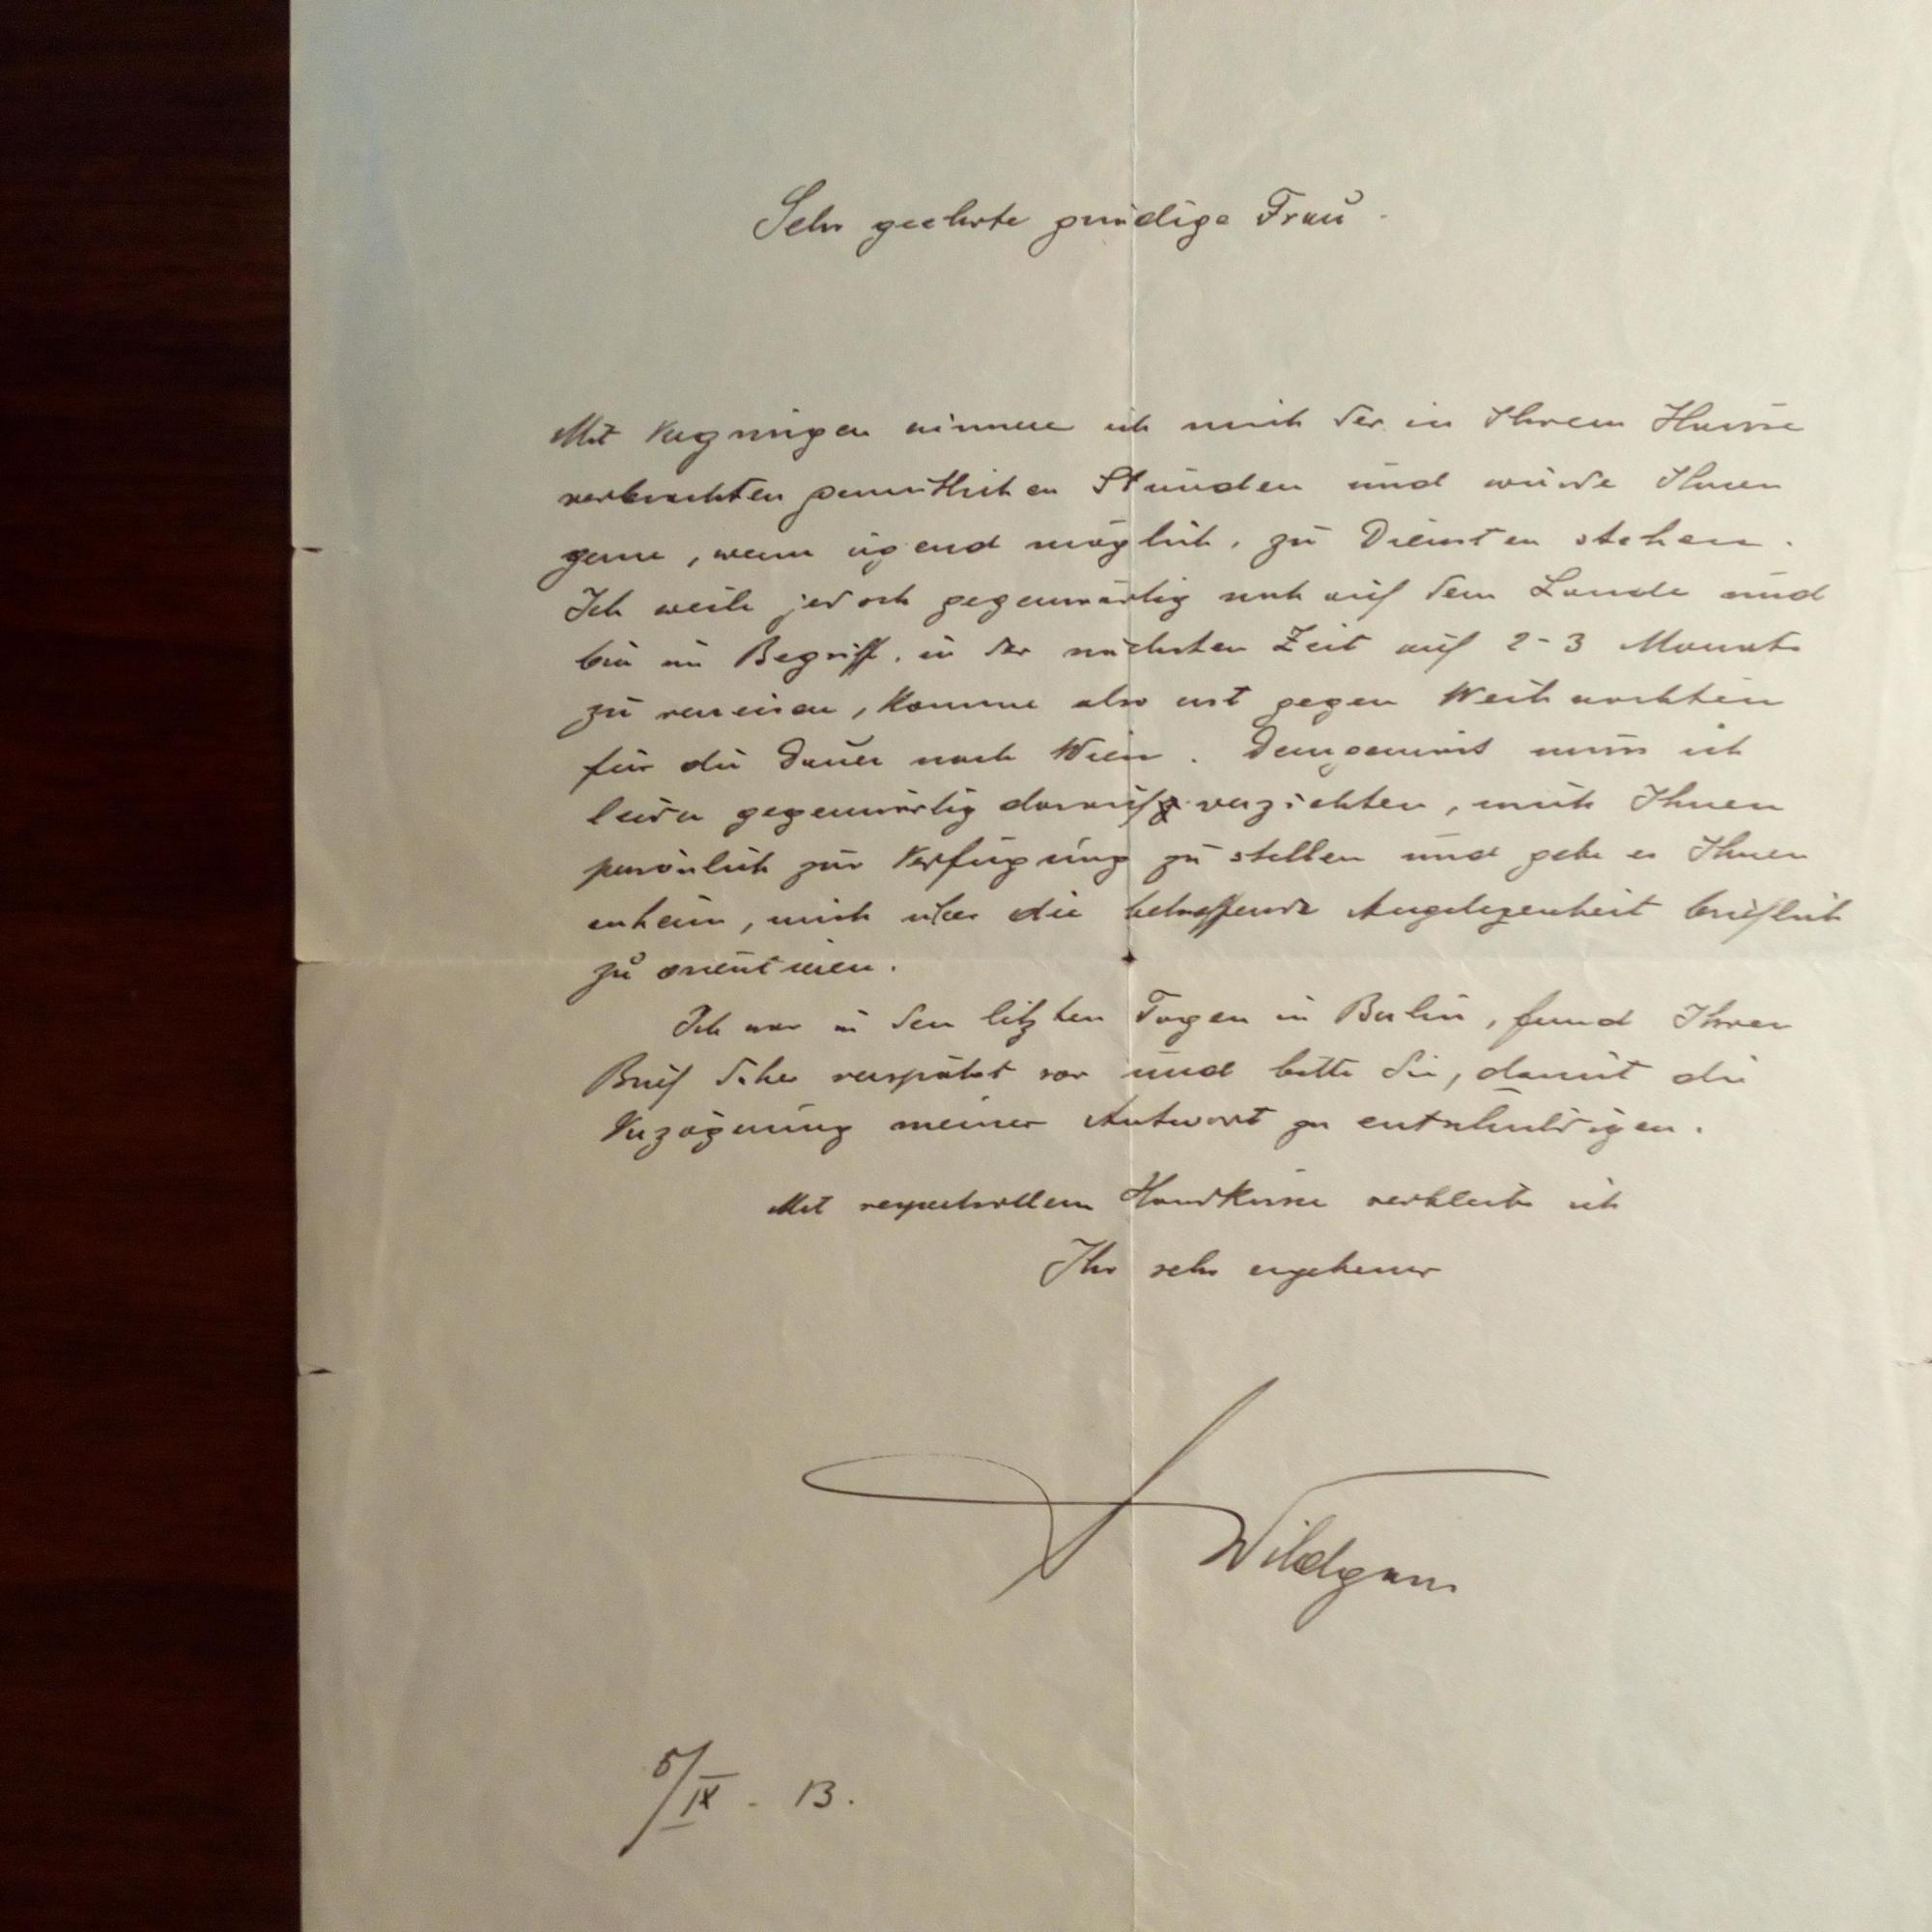 Sehr geehrte gnädige Frau.
Mit Vergnügen erinnere ich mich der in Ihrem Hause
verbrachten gemüthlichen Stunden und würde Ihnen
gerne, wenn irgend möglich, zu Diensten stehen.
Ich weile jedoch gegenwärtig noch auf dem Lande und
bin im Begriff, in der nächsten Zeit auf 2-3 Monate
zu verreisen, komme also erst gegen Weihnachten
für die Dauer nach Wien. Demgemäss muss ich
leider gegenwärtig darauf verzichten, mich Ihnen
persönlich zur Verfügung zu stellen und gebe es Ihnen
anheim, mich über die betreffende Angelegenheit brieflich
zu orientieren.
Ich war in den letzten Tagen in Berlin, fand Ihren
Brief daher verspätet vor und bitte Sie, damit die
Verzögerung meiner Antwort zu entschuldigen.
Mit respectvollem Handkusse verbleibe ich
Ihr sehr ergebener
A Wildgans
5/IX - 13.